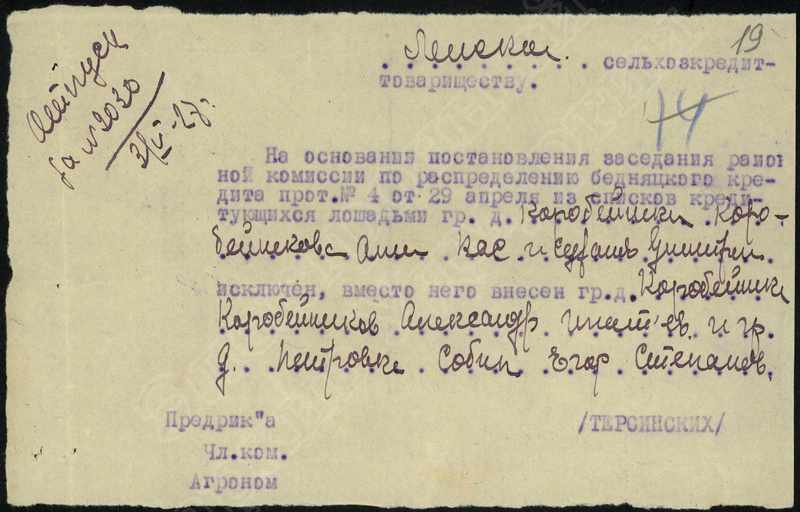 19
Отпуск
за №2030
3/V-27г.
Ленском. сельхозкредит-
товариществу.
14
На основании постановления заседания район
ной комиссии по распределению бедняцкого кре-
дита прот.№ 4 от 29 апреля из списков креди-
тующихся лошадьми гр. д. Коробейники Коро-
бейникова Анни Кас и
исключен, вместо него внесен гр.д. Коробейники
Коробейников Александр Игнат'ев. и гр.
д. Петровки Собин Егор Степанов.
Предрик"а /ТЕРСИНСКИХ/
Чл.ком.
Агроном